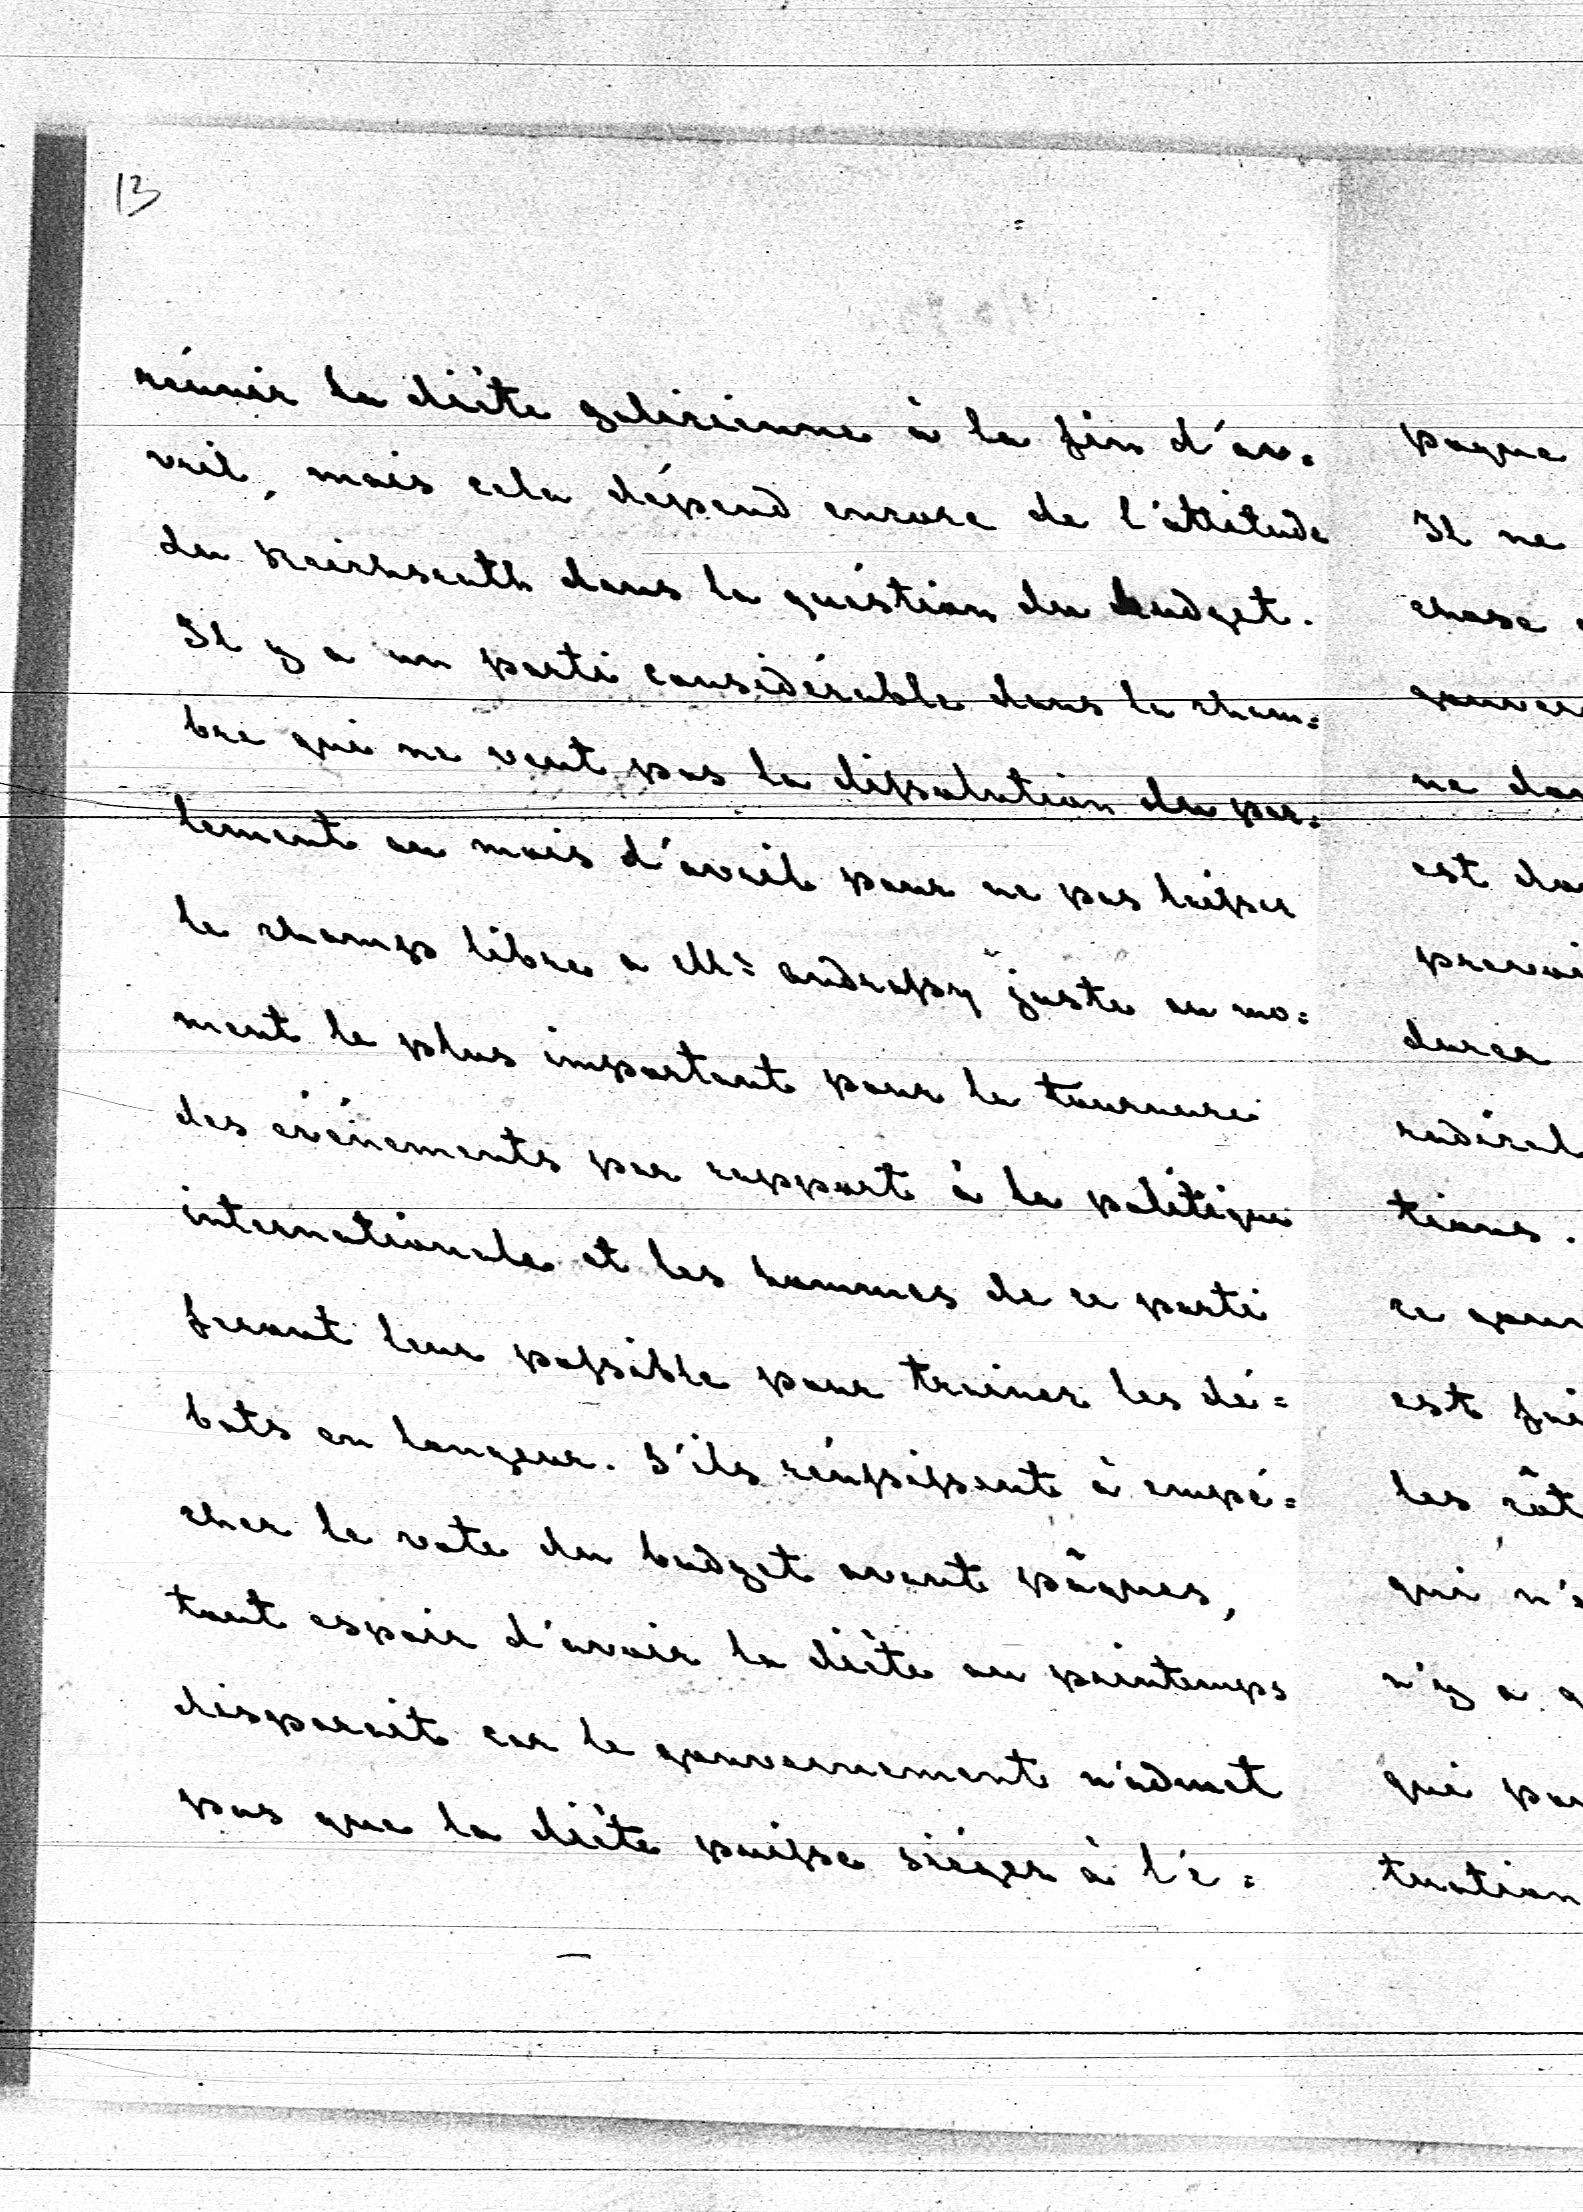 13
réunir la diète galicienne à la fin d'av=
vril, mais cela dépend encore de l'attitude
du Reichsrath dans la question du budget.
Il y a un parti considérable dans la cham=
bre qui ne veut pas la dissolution du par=
lement au mois d'avril pour ne pas laisser
le champ libre a Mr Andrassy juste au mo=
ment le plus important pour la tournure
des événements par rapport à la politique
internationale et les hommes de ce parti
feront leur possible pour trainer les dé=
bats en longeur. S'ils réussissent à empé=
cher le vote du budget avant pâques,
tout espoir d'avoir la diète au printemps
disparait car le gouvernement n'admet
pas que la diète puisse siéger à l'é=
poque
Il ne
chose
gouver
ne da
est da
prevoi
durer
radical
tions.
ce gou
est fai
les côt
qui n'
n'y a
qui pa
tuation